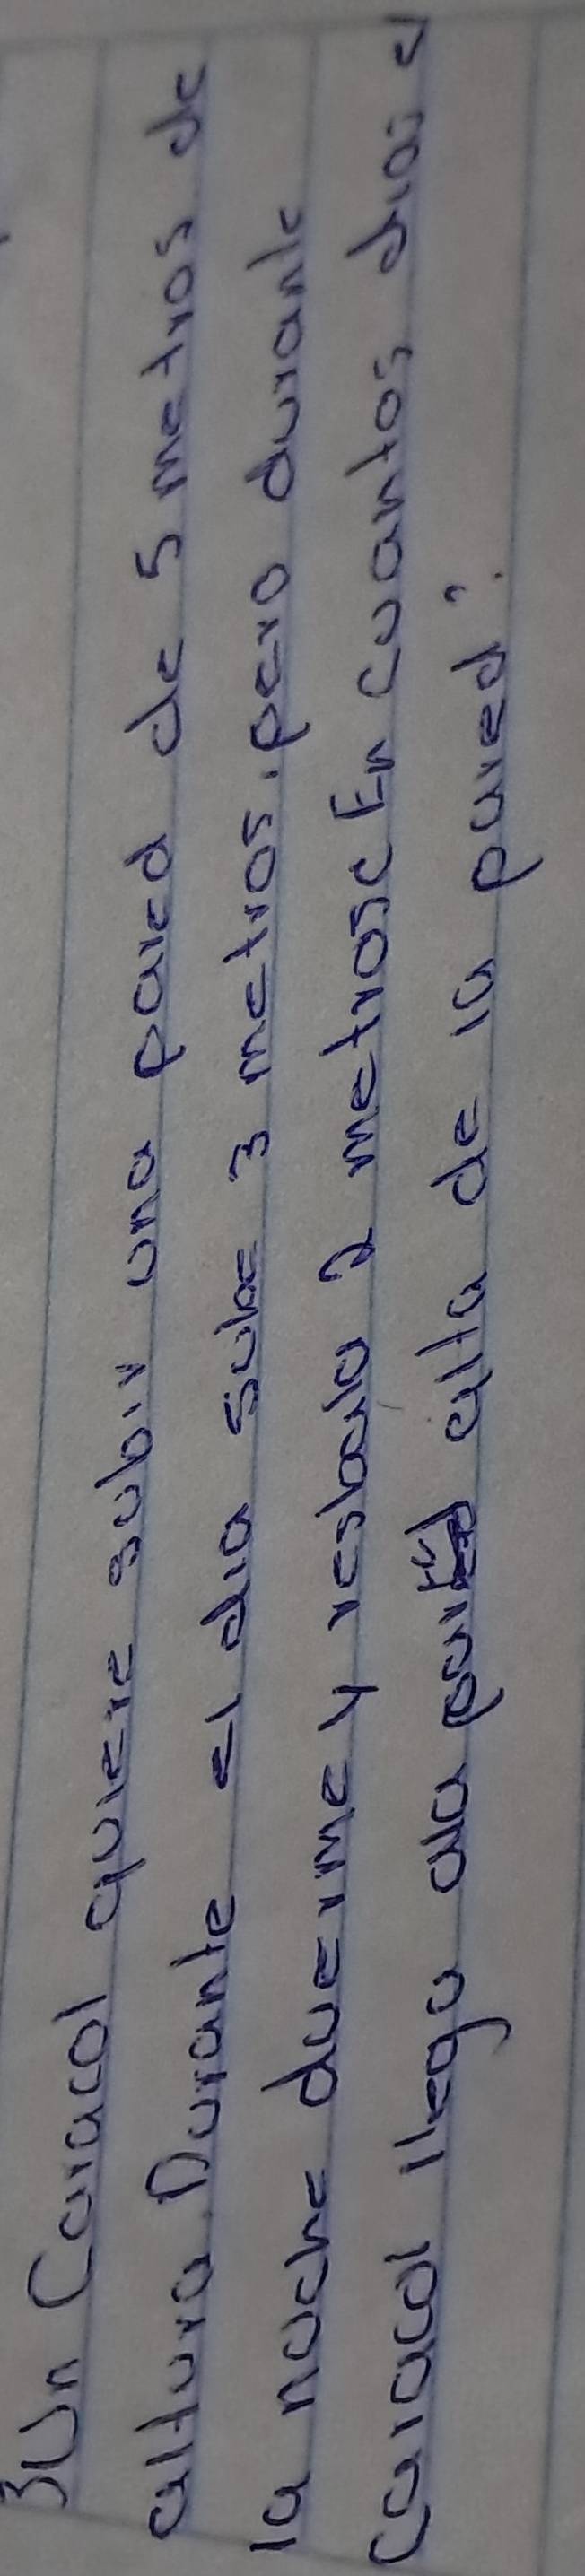 3 Un Caracol quiere subir una pared de 5 metros de
altura. Durante el dia sube 3 metros, pero durante
la noche duerme y resbala 2 metros ¿ En cuantos dias el
Caracol llega ala parte alta de la pared?